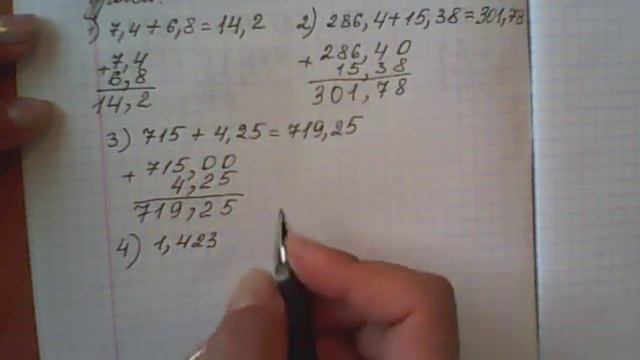 1) 7,4 + 6,8 = 14,2
+ 7,4
6,8
14,2
2) 286,4 + 15,38 = 301,78
+ 286,40
15,38
301,78
3) 715 + 4,25 = 719,25
+ 715,00
4,25
719,25
4) 1,423